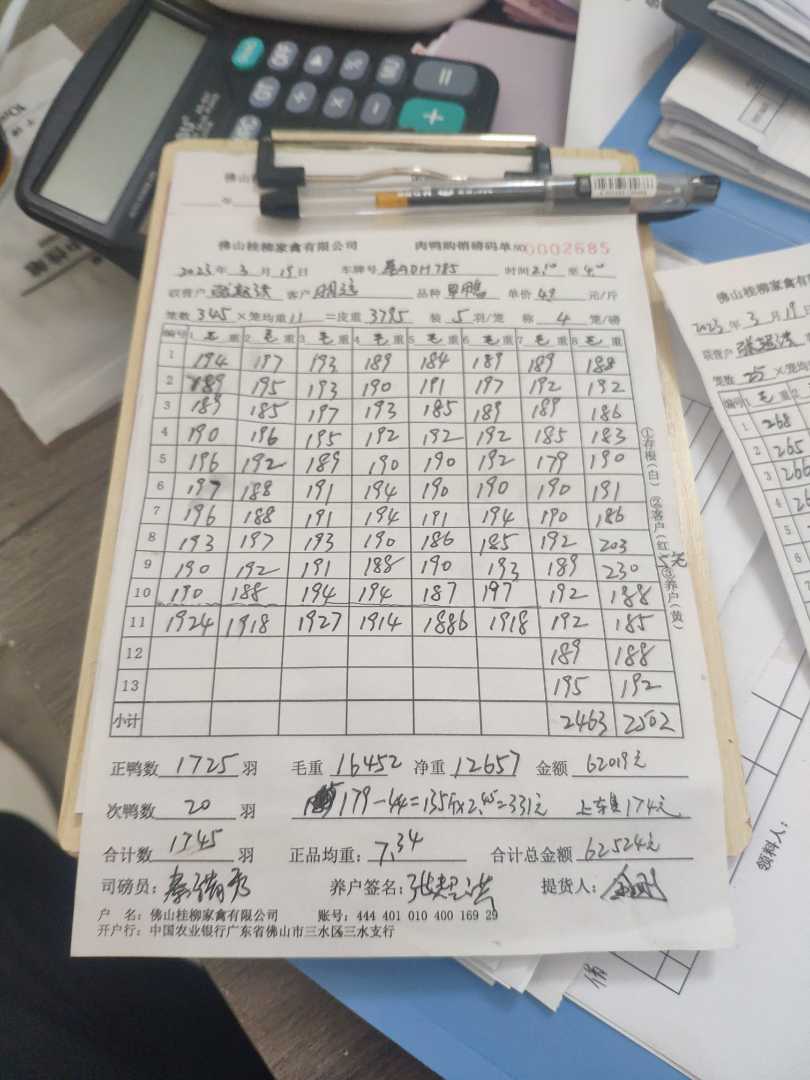 佛山桂柳家禽有限公司 肉鸭购销磅码单 NO 0002685
2023年3月19日 车牌号 ADM785 时间2:00至4:00
收营户 客户 明远 品种 甲鸭 单价4.9元/斤
笼数345×笼均重11=皮重3795 装5羽/笼 称4笼/磅
编号 1毛重 2毛重 3毛重 4毛重 5毛重 6毛重 7毛重 8毛重
1 194 197 193 189 184 189 189 188
2 189 195 193 190 191 197 192 192
3 189 185 197 193 185 189 189 186
4 190 196 195 192 192 192 185 183
5 196 192 189 190 190 192 179 190
6 197 188 191 194 190 190 190 191
7 196 188 191 194 191 194 190 186
8 193 197 193 190 186 185 192 203
9 190 192 191 188 190 193 189 230
10 190 188 194 194 187 197 192 188
11 1924 1918 1927 1914 1886 1918 192 185
12 189 188
13 195 192
小计 2463 2502
①存根(白) ②客户(红) ③养户(黄)
正鸭数1725羽 毛重16452 净重12657 金额62019元
次鸭数20羽 179-44=135斤×2.45=331元 174元
合计数1745羽 正品均重:7.34 合计总金额62524元
司磅员: 养户签名: 提货人:
户 名:佛山桂柳家禽有限公司 账号:444 401 010 400 169 29
开户行:中国农业银行广东省佛山市三水区三水支行
佛山桂柳家禽有
2023年3月19日
笼数25×笼均
编号 1毛重 2
1 268
2 265
3 266
4
5
6
领料人: